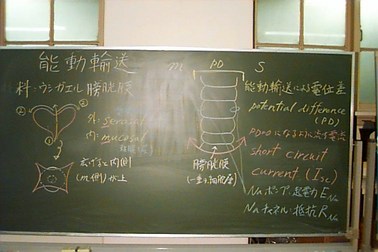 能動輸送
材料・ウシガエル膀胱膜
外・serosal
内・mucosal
広げると内側
(m側)が上
m PD S
膀胱膜
(一重の細胞層)
能動輸送による電位差
potential difference
(PD)
PD=0になるように流す電流
short circuit
current (Isc)
Naポンプ・起電力 ENa
Naチャネル・抵抗 RNa